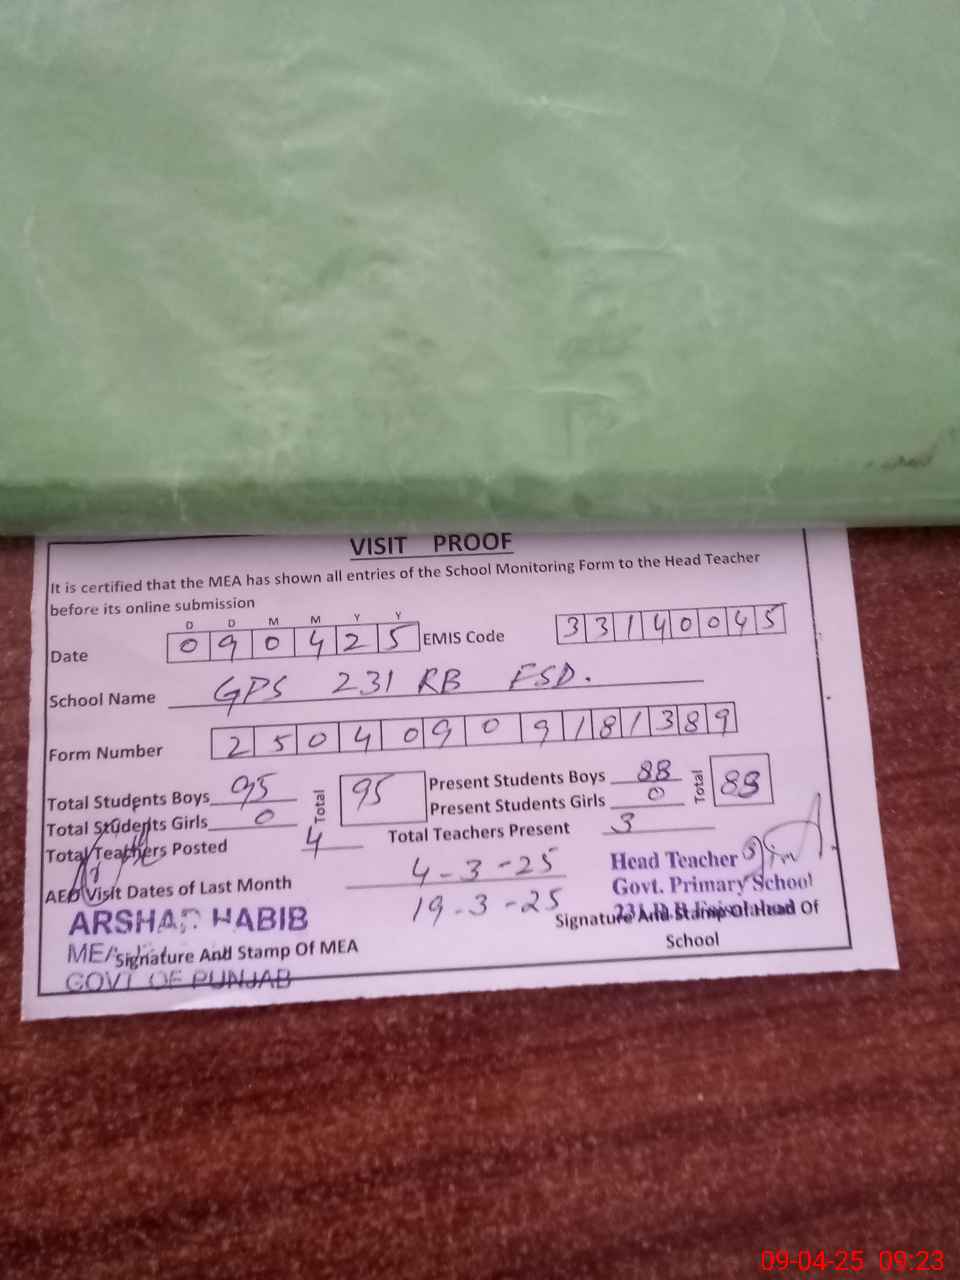 VISIT PROOF
It is certified that the MEA has shown all entries of the School Monitoring Form to the Head Teacher
before its online submission
D D M M Y Y
Date 0 9 0 4 2 5 EMIS Code 3 3 1 4 0 0 4 5
School Name GPS 231 RB FSD.
Form Number 2 5 0 4 0 9 0 9 1 8 1 3 8 9
Total Students Boys 95 Total 95 Present Students Boys 88 Total 88
Total Students Girls 0 Present Students Girls 0
Total Teachers Posted 4 Total Teachers Present 3
AEO Visit Dates of Last Month 4-3-25
19-3-25
Head Teacher
Govt. Primary School
231 R.B Faisalabad
Signature And Stamp Of Head Of
School
ARSHAD HABIB
MEA
Signature And Stamp Of MEA
GOVT OF PUNJAB
09-04-25 09:23